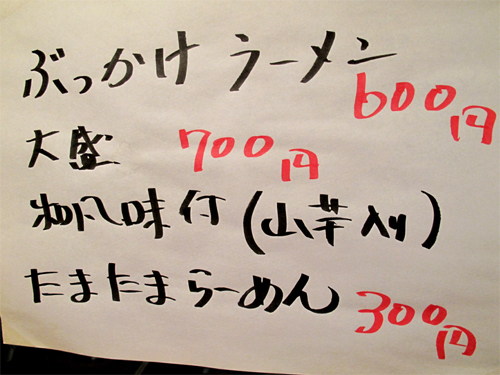 ぶっかけラーメン
600円
大盛 700円
和風味付(山芋入り)
たまたまらーめん
300円